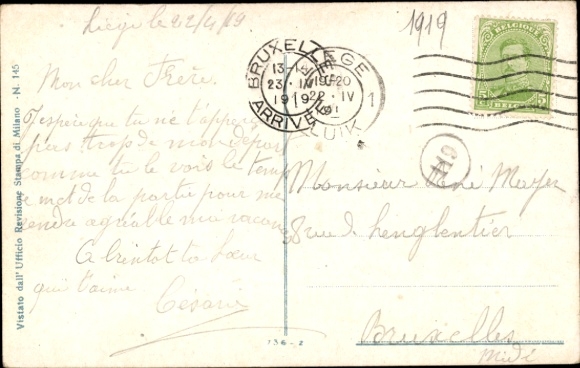 Liège le 22/4/19
Mon cher Frère.
J'espère que tu ne t'aperçois
pas trop de mon départ
comme tu le vois le temps
se met de la partie pour me
rendre agréable mes vacances
A bientôt ta sœur
qui t'aime
Césarie
1919
BRUXELLES
13-14
23 · IV
1919
ARRIVEE
LIEGE
19-20
22 · IV
LUIK
1
BELGIQUE
5
BELGIE
5
119
Monsieur René Meyer
38 rue de Lenglentier
Bruxelles
Midi
Vistato dall' Ufficio Revisione Stampa di Milano - N. 145
136-2